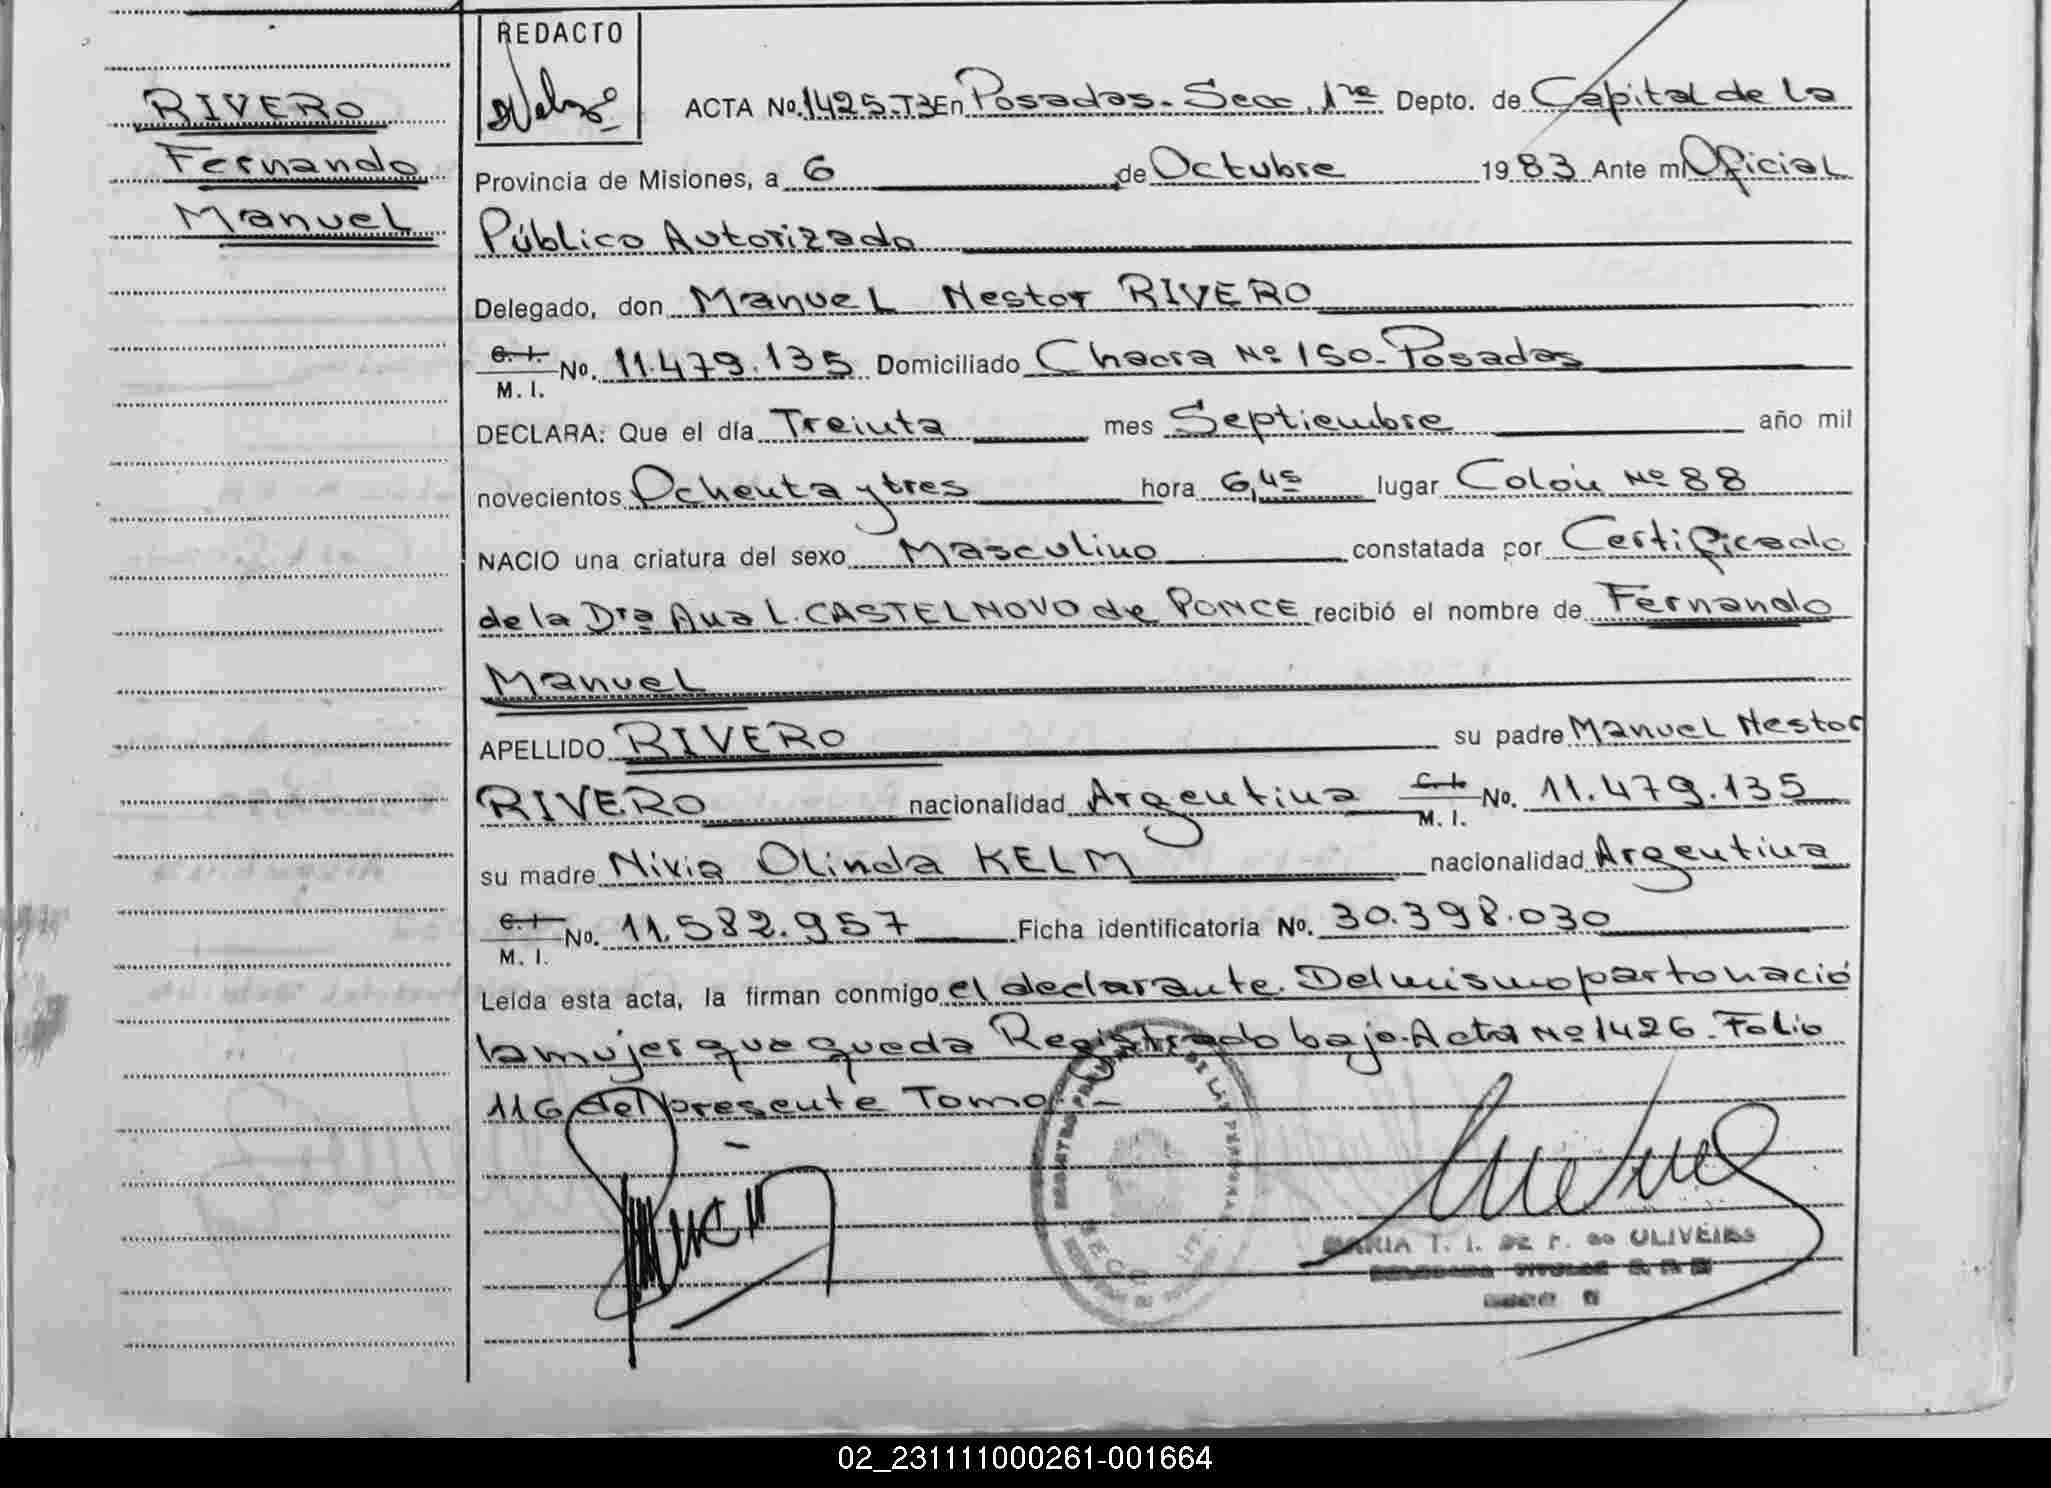 REDACTO
RIVERO
Fernando
Manuel
ACTA No. 1425-T3 En Posadas - Secc. 1ra Depto. de Capital de la
Provincia de Misiones, a 6 de Octubre 1983 Ante mi Oficial
Público Autorizado
Delegado, don Manuel Nestor RIVERO
C. I. M. I. No. 11.479.135 Domiciliado Chacra Nº 150 - Posadas
DECLARA: Que el día Treinta mes Septiembre año mil
novecientos Ochenta y tres hora 6,45 lugar Colón Nº 88
NACIO una criatura del sexo Masculino constatada por Certificado
de la Dra Ana L. CASTELNOVO de PONCE recibió el nombre de Fernando
Manuel
APELLIDO RIVERO su padre Manuel Nestor
RIVERO nacionalidad Argentina C. I. M. I. No. 11.479.135
su madre Nivia Olinda KELM nacionalidad Argentina
C. I. M. I. No. 11.582.957 Ficha identificatoria No. 30.398.030
Leída esta acta, la firman conmigo el declarante. Del mismo parto nació
la mujer que queda Registrado bajo Acta Nº 1426 - Folio
116 del presente Tomo.-
MARIA T. I. DE F. DO OLIVEIRA
02_231111000261-001664